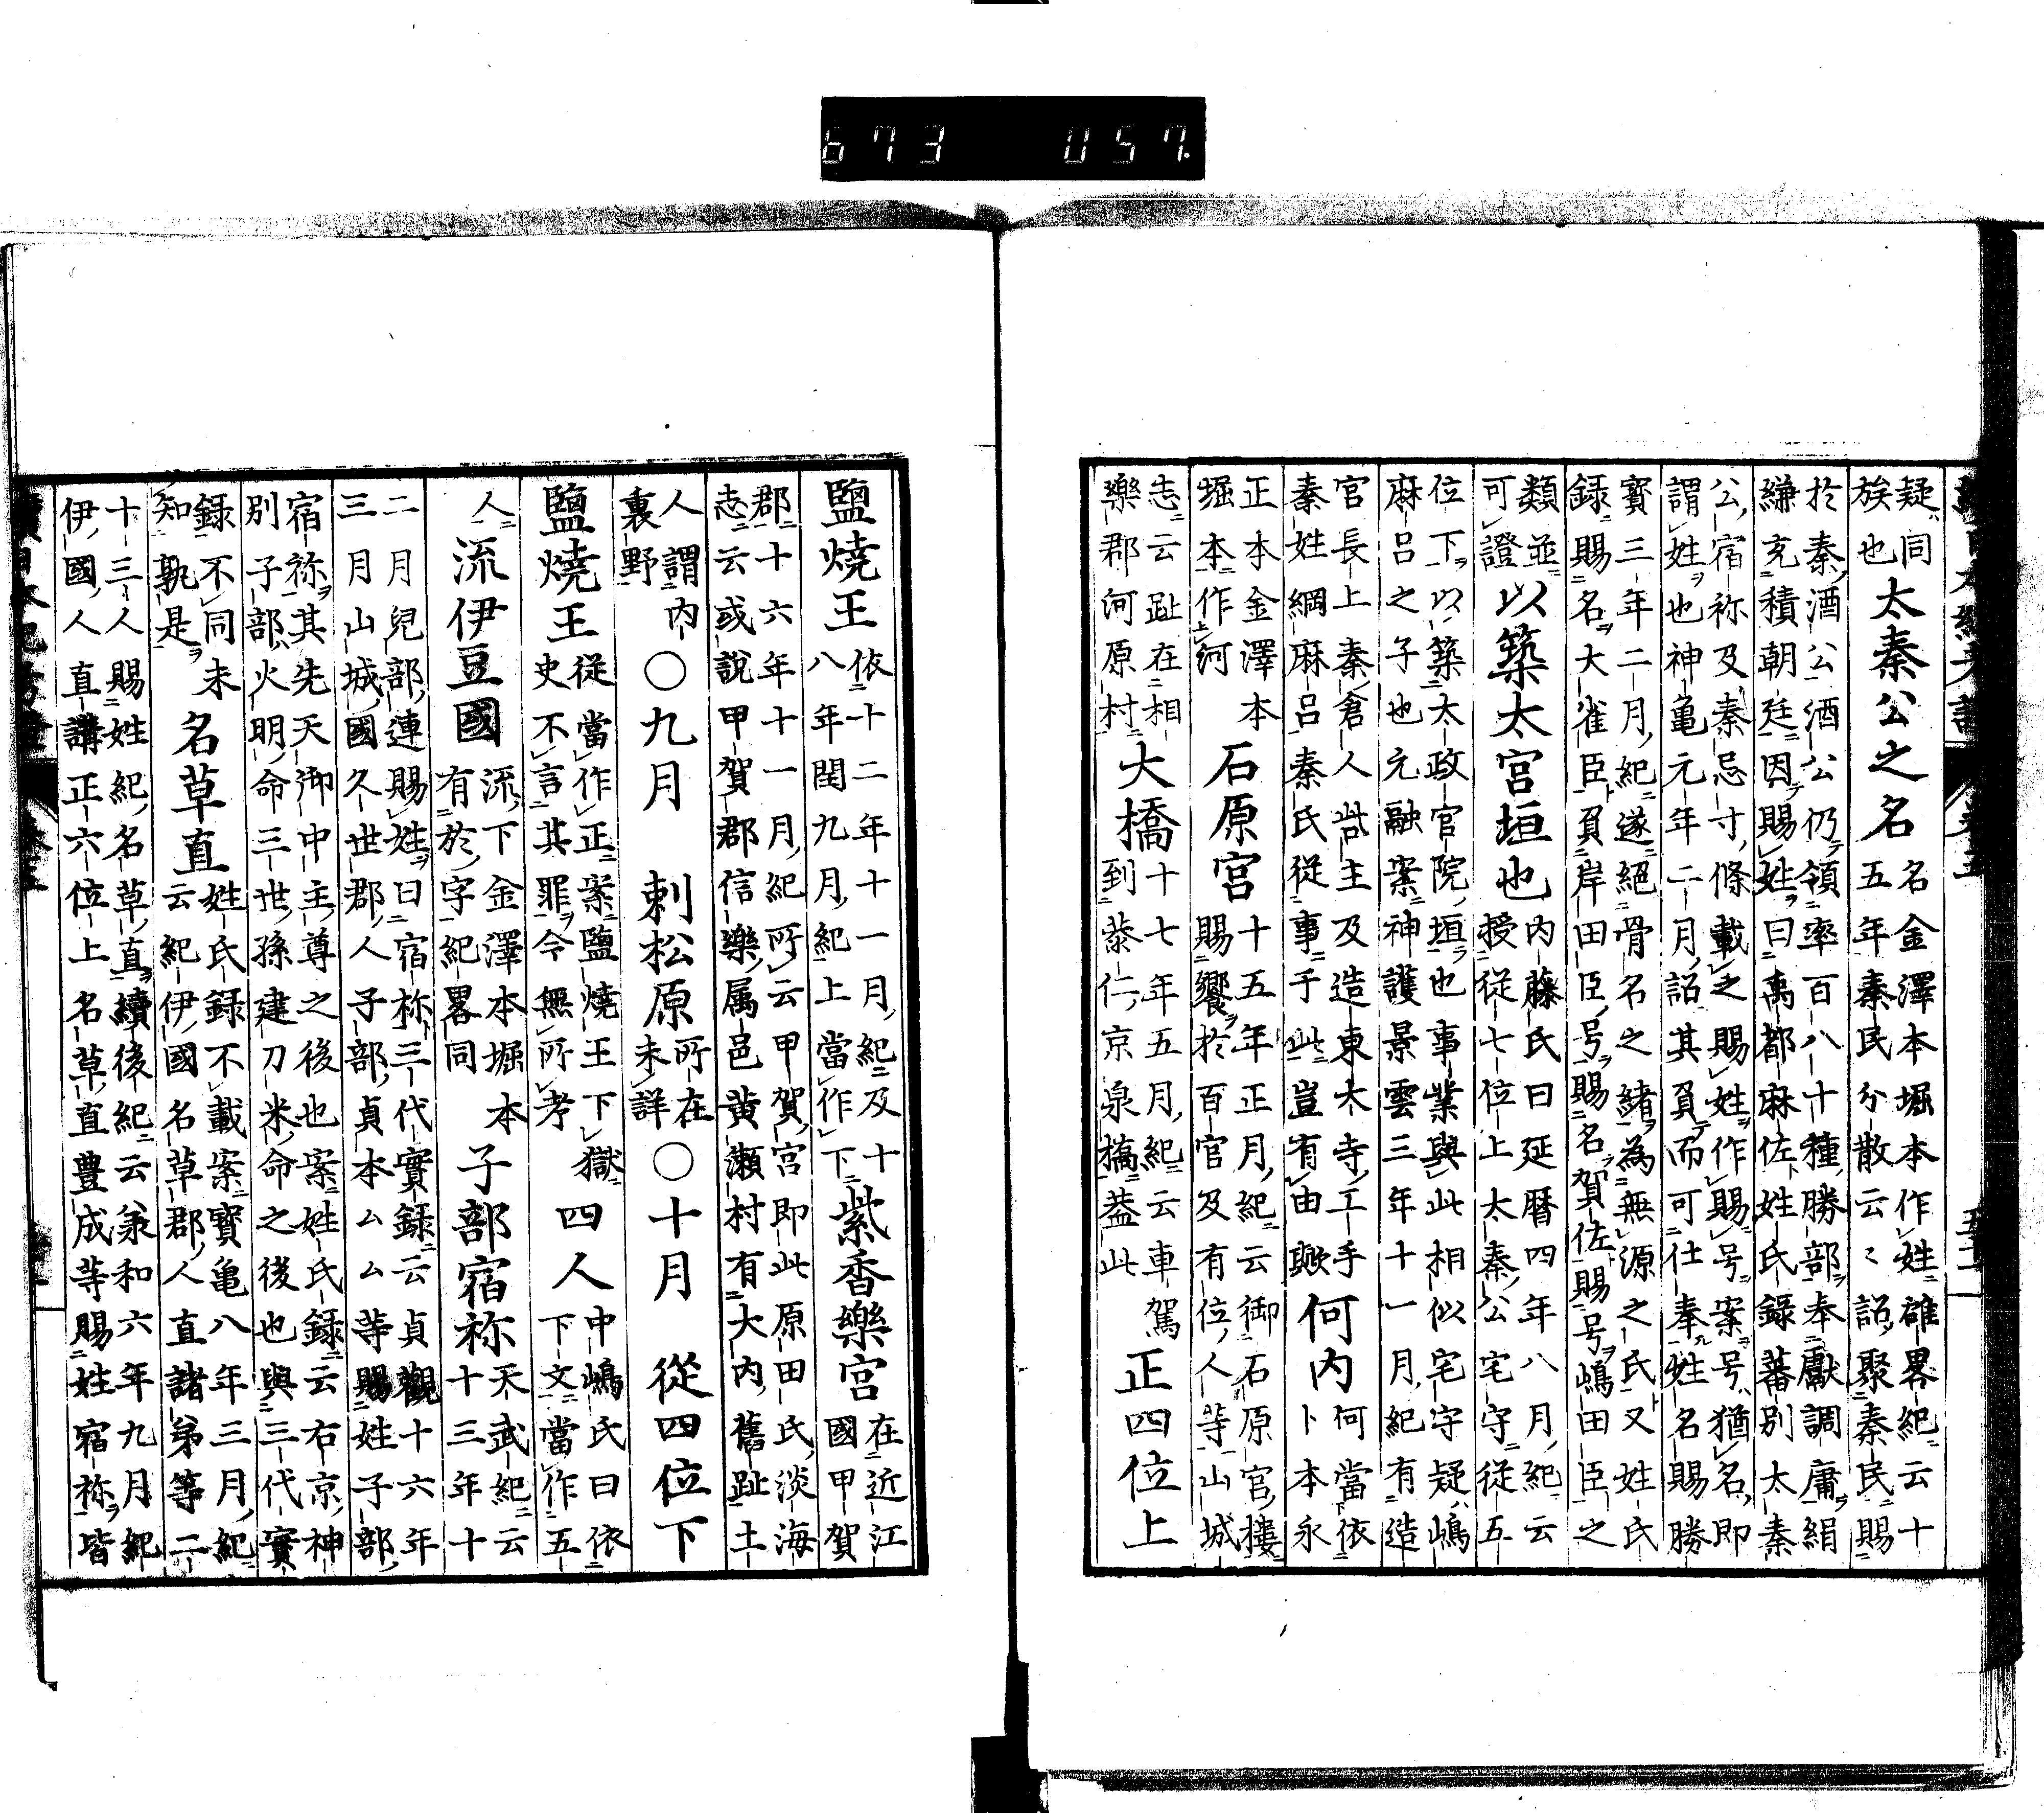 673 057.
疑同
族也
太秦公之名
名金澤本堀本作姓雄畧紀云十
五年秦民分散云〻詔聚秦民賜
於秦酒公酒公仍領率百八十種勝部奉獻調庸絹
縑充積朝廷因賜姓曰禹都麻佐姓氏錄蕃別太秦
公宿祢及秦忌寸條載之賜姓作賜号案号猶名即
謂姓也神亀元年二月詔其負而可仕奉姓名賜勝
寶三年二月紀遂絕骨名之緒為無源之氏又姓氏
録賜名大雀臣負岸田臣号賜名賀佐賜号嶋田臣之
類並
可證
以築太宮垣也
内藤氏曰延暦四年八月紀云
授從七位上太秦公宅守從五
位下以築太政官院垣也事業與此相似宅守疑嶋
麻呂之子也元融案神護景雲三年十一月紀有造
官長上秦倉人呰主及造東大寺工手
秦姓綱麻呂秦氏從事于此豈有由歟
何内
何當依
卜本永
正本金澤本
堀本作河
石原宮
十五年正月紀云御石原宮樓
賜饗於百官及有位人等山城
志云趾在相
樂郡河原村
大橋
十七年五月紀云車駕
到恭仁京泉橋蓋此
正四位上
鹽焼王
依十二年十一月紀及十
八年閏九月紀上當作下
紫香樂宮
在近江
國甲賀
郡十六年十一月紀所云甲賀宮即此原田氏淡海
志云或説甲賀郡信樂属邑黄瀬村有大内舊趾土
人謂内
裏野
〇九月
刺松原
所在
未詳
〇十月
從四位下
鹽燒王
從當作正案鹽焼王下獄
史不言其罪今無所考
四人
中嶋氏曰依
下文當作五
人
流伊豆國
流下金澤本堀本
有於字紀畧同
子部宿祢
天武紀云
十三年十
二月兒部連賜姓曰宿祢三代實録云貞觀十六年
三月山城國久世郡人子部貞本厶厶等賜姓子部
宿祢其先天御中主尊之後也案姓氏録云右京神
別子部火明命三世孫建刀米命之後也與三代實
録不同未
知孰是
名草直
姓氏録不載案寶亀八年三月紀
云紀伊國名草郡人直諸弟等二
十三人賜姓紀名草直續後紀云承和六年九月紀
伊國人直講正六位上名草直豊成等賜姓宿祢皆